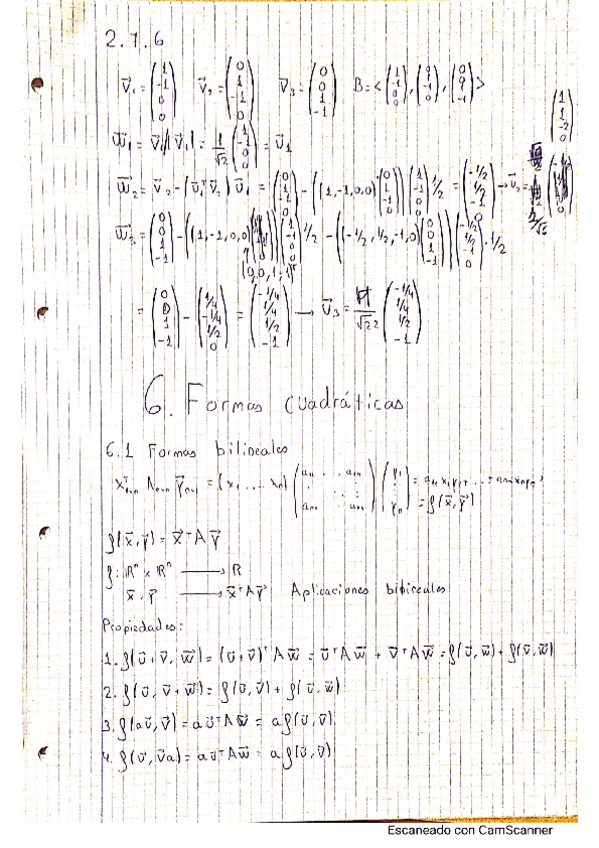 2.7.6
V⃗₁ = (1 -1 0 0) V⃗₂ = (0 1 -1 0) V⃗₃ = (0 0 1 -1) B = < (1 -1 0 0), (0 1 -1 0), (0 0 1 -1) >
W⃗₁ = V⃗₁/|V⃗₁| = 1/√2 (1 -1 0 0) = U⃗₁
W⃗₂ = V⃗₂ - (U⃗₁ᵀ V⃗₂) U⃗₁ = (0 1 -1 0) - ((1,-1,0,0) (0 1 -1 0)) (1 -1 0 0) 1/2 = (-1/2 1/2 -1 0) → U⃗₂ =
W⃗₃ = (0 0 1 -1) - ((1,-1,0,0) (0,0,1,-1)ᵀ) (1 -1 0 0) 1/2 - ((-1/2, 1/2, -1, 0) (0 0 1 -1)) (-1/2 1/2 -1 0) · 1/2
= (0 0 1 -1) - (1/4 -1/4 1/2 0) = (-1/4 1/4 1/2 -1) → U⃗₃ = (-1/4 1/4 1/2 -1)
6. Formas cuadráticas
6.1 Formas bilineales
f(x⃗, y⃗) = x⃗ᵀ A y⃗
f: ℝⁿ × ℝⁿ → ℝ
x⃗, y⃗ → x⃗ᵀAy⃗ Aplicaciones bilineales
Propiedades:
1. f(u⃗+v⃗, w⃗) = (u⃗+v⃗)ᵀ A w⃗ = u⃗ᵀAw⃗ + v⃗ᵀAw⃗ = f(u⃗, w⃗) + f(v⃗, w⃗)
2. f(u⃗, v⃗+w⃗) = f(u⃗, v⃗) + f(u⃗, w⃗)
3. f(au⃗, v⃗) = au⃗ᵀAw⃗ = a f(u⃗, v⃗)
4. f(u⃗, v⃗a) = au⃗ᵀAw⃗ = a f(u⃗, v⃗)
Escaneado con CamScanner